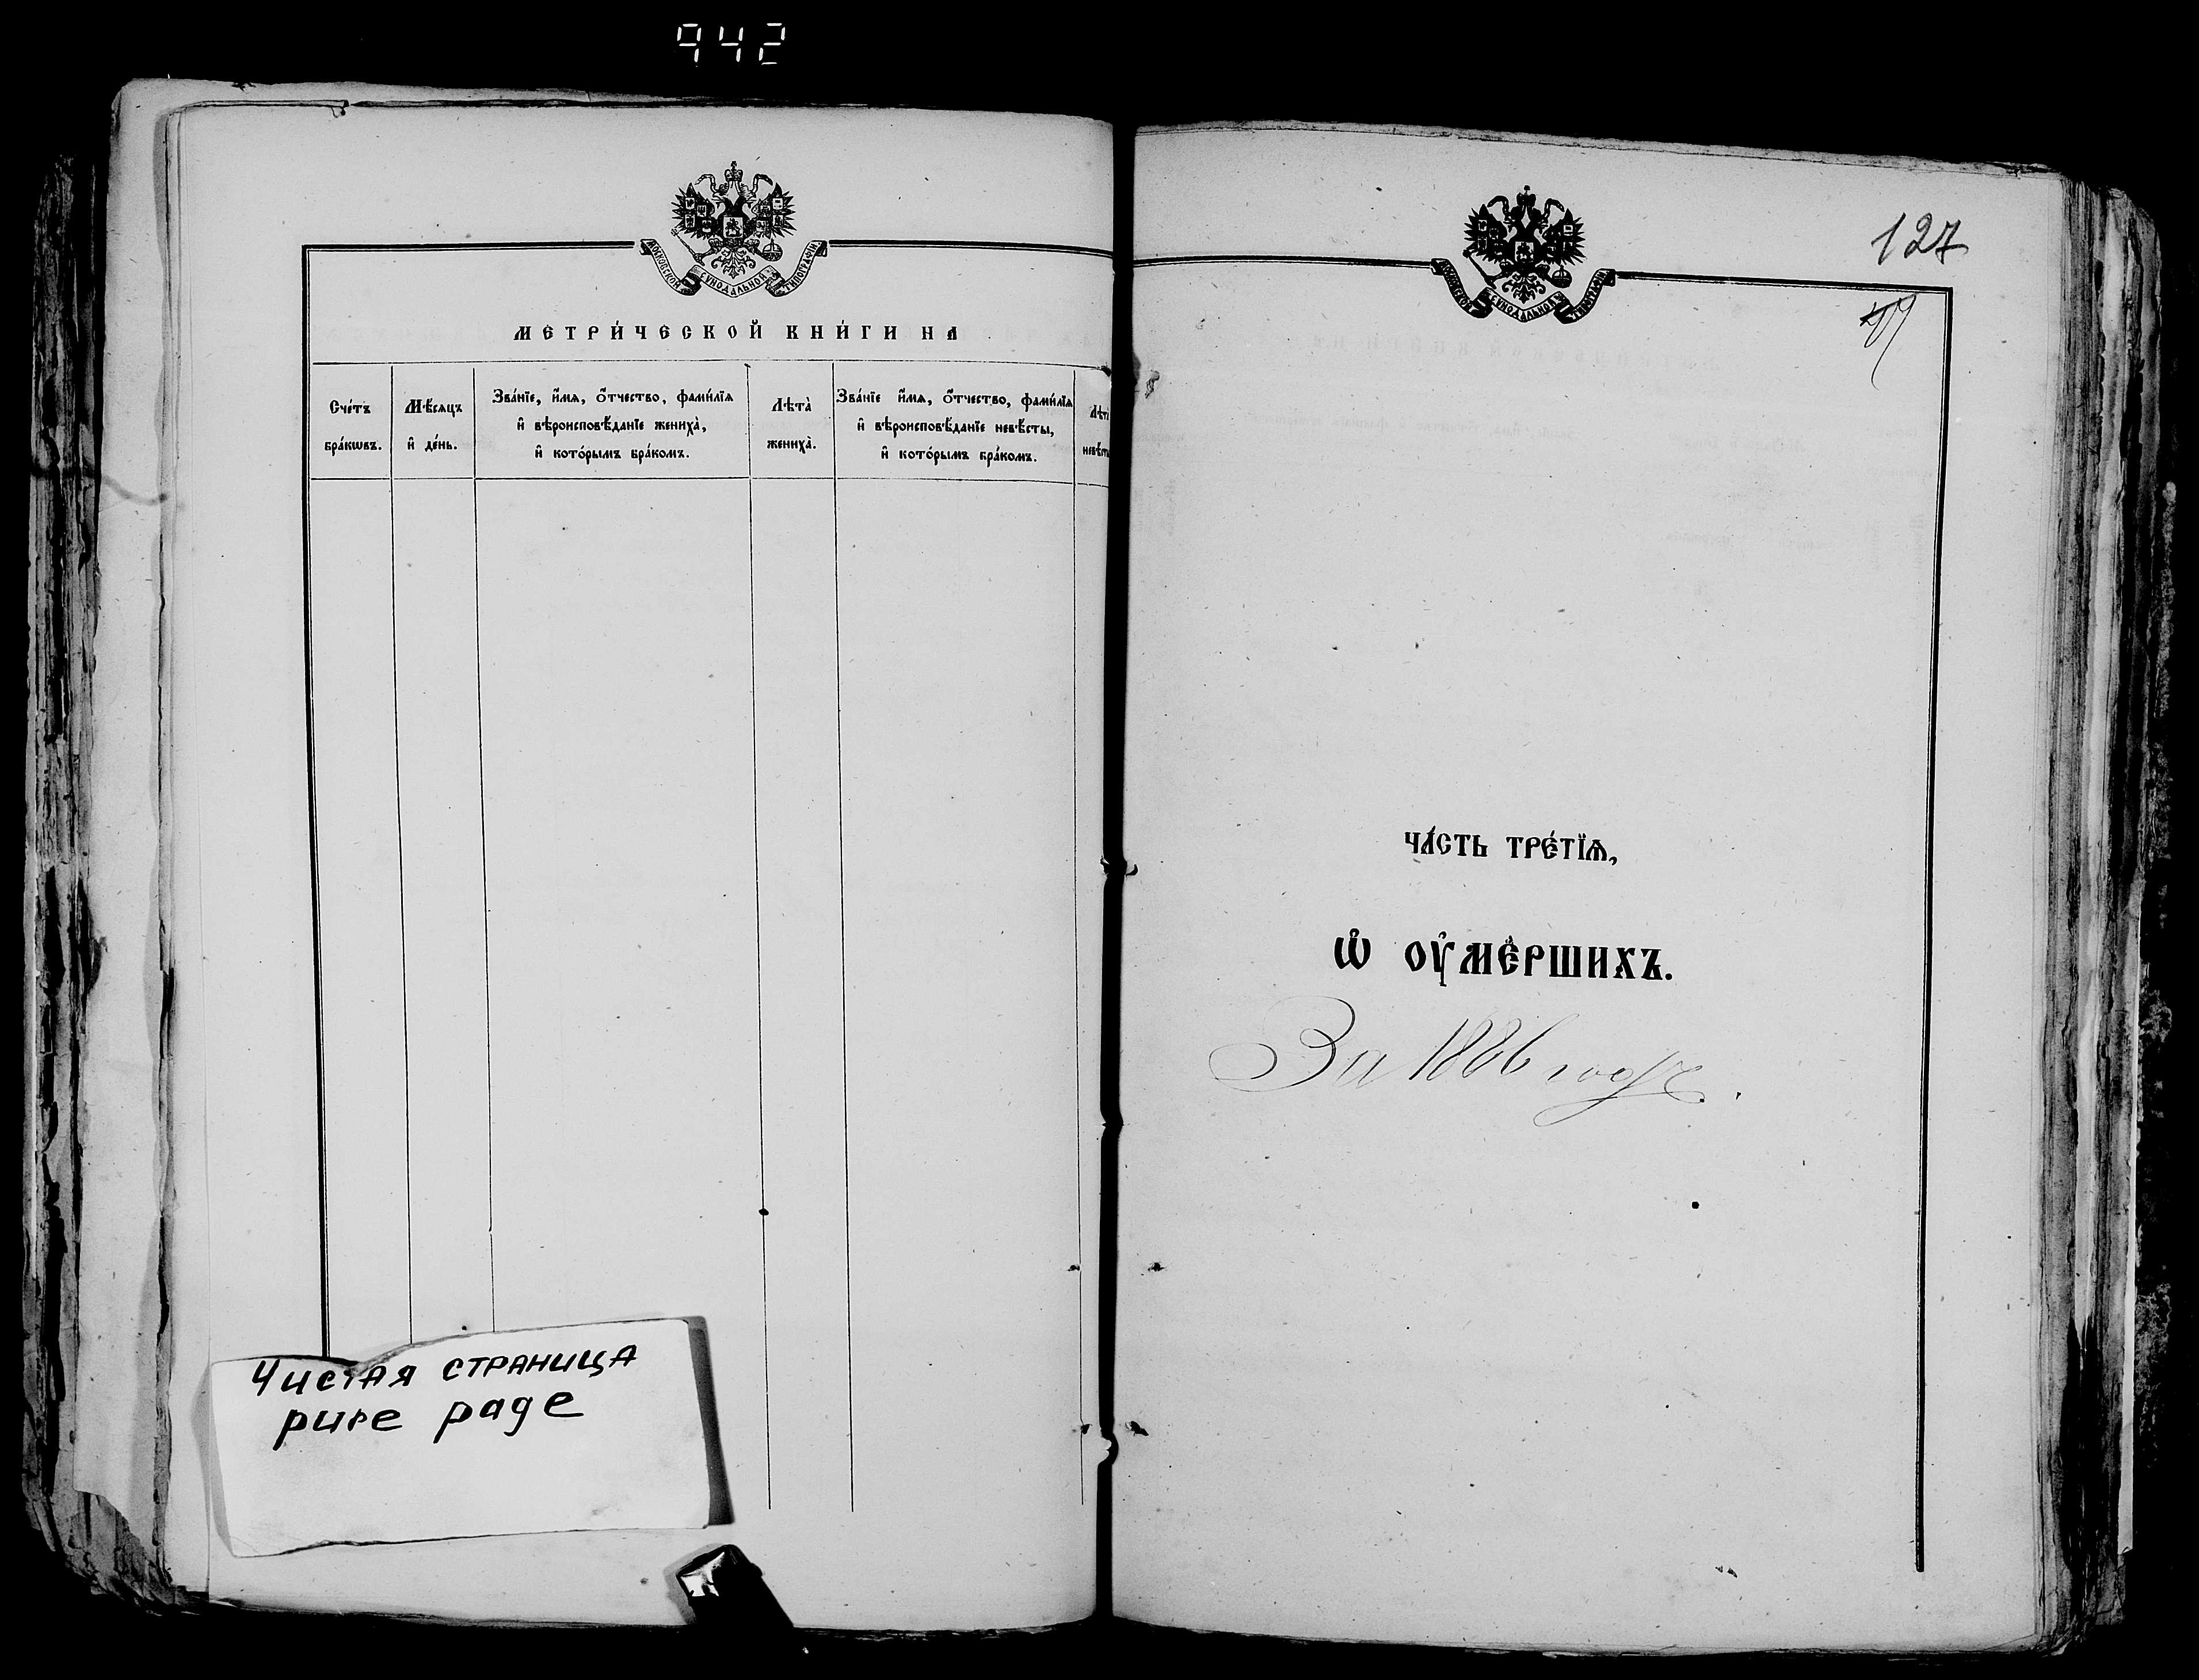 942
МОСКОВСКОЙ СѴНОДАЛЬНОЙ ТИПОГРАФІИ
МЕТРИ́ЧЕСКОЙ КНИ́ГИ НА
Сче́тъ бра́кѡвъ.
Мѣ́сяцъ и҆ де́нь.
Зва́нїе, и҆́мѧ, ѻ҆́тчество, фами́лїѧ
и҆ вѣроисповѣ́данїе жениха̀,
и҆ кото́рымъ бра́комъ.
Лѣта̀ жениха̀.
Зва́нїе и҆́мѧ, ѻ҆́тчество, фами́лїѧ
и҆ вѣроисповѣ́данїе невѣ́сты,
и҆ кото́рымъ бра́комъ.
Чистая страница
pure page
127
МОСКОВСКОЙ СѴНОДАЛЬНОЙ ТИПОГРАФІИ
ЧА́СТЬ ТРЕ́ТЇѦ,
Ѡ҆ ОУ҆МЕ́РШИХЪ.
За 1886 годъ.